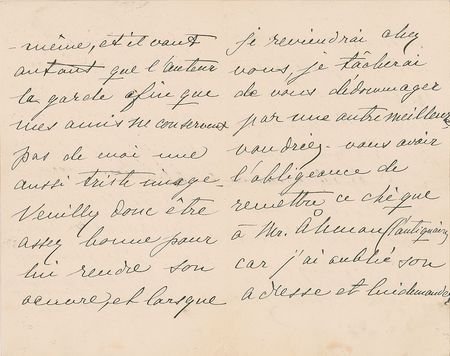 -même, et il vaut
autant que l'auteur
la garde afin que
mes amis ne conservent
pas de moi une
aussi triste image.
Veuilly donc être
assez bonne pour
lui rendre son
oeuvre, et lorsque
je reviendrai chez
vous, je tâcherai
de vous dédommager
par une autre meilleure
voudriez-vous avoir
l'obligeance de
remettre ce chèque
à Mr. Åhman (l'antiquaire)
car j'ai oublié son
adresse et lui demander